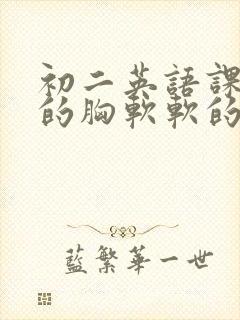 初二英語課
的胸軟軟的
藍繁華一世